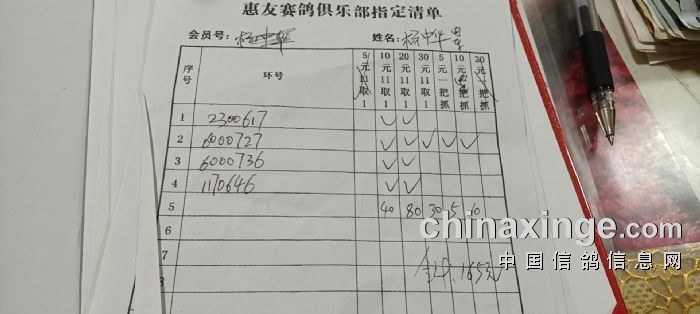 惠友赛鸽俱乐部指定清单
会员号: 姓名:
序号 环号 5元11取1 10元11取1 20元11取1 30元11取1 5元一把抓 10元一把抓 20元一把抓
1 2300617 ✓ ✓
2 6000727 ✓ ✓ ✓ ✓ ✓
3 6000736 ✓ ✓
4 1170646 ✓ ✓
5 40 80 30 5 10
6
7
8 165元
chinaxinge.com
中国信鸽信息网